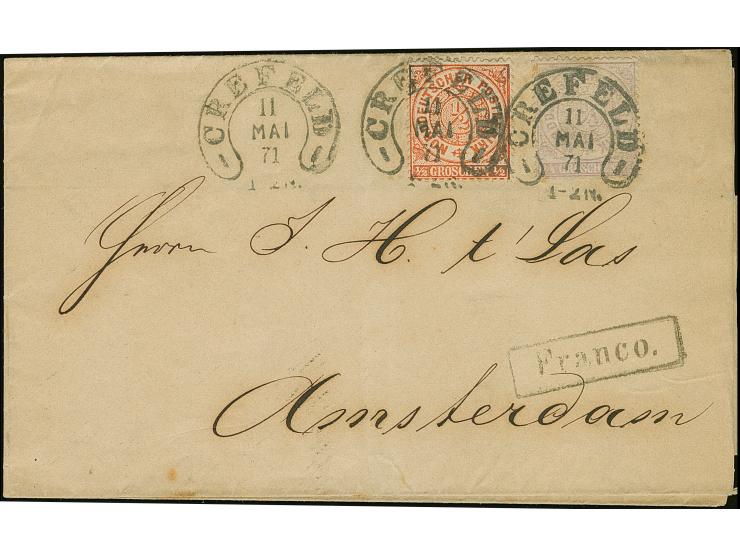 CREFELD
11
MAI
71
1-2N.
CREFELD
11
MAI
71
1-2N.
CREFELD
11
MAI
71
1-2N.
NORDDEUTSCHER POSTBEZIRK
1/2 GROSCHEN 1/2
Herrn J. H. t' Las
Franco.
Amsterdam